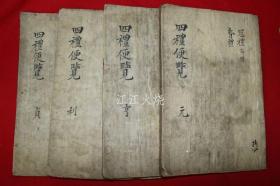 四禮便覽 元
冠禮
昏禮
四禮便覽 亨
四禮便覽 利
四禮便覽 貞
江江火烧